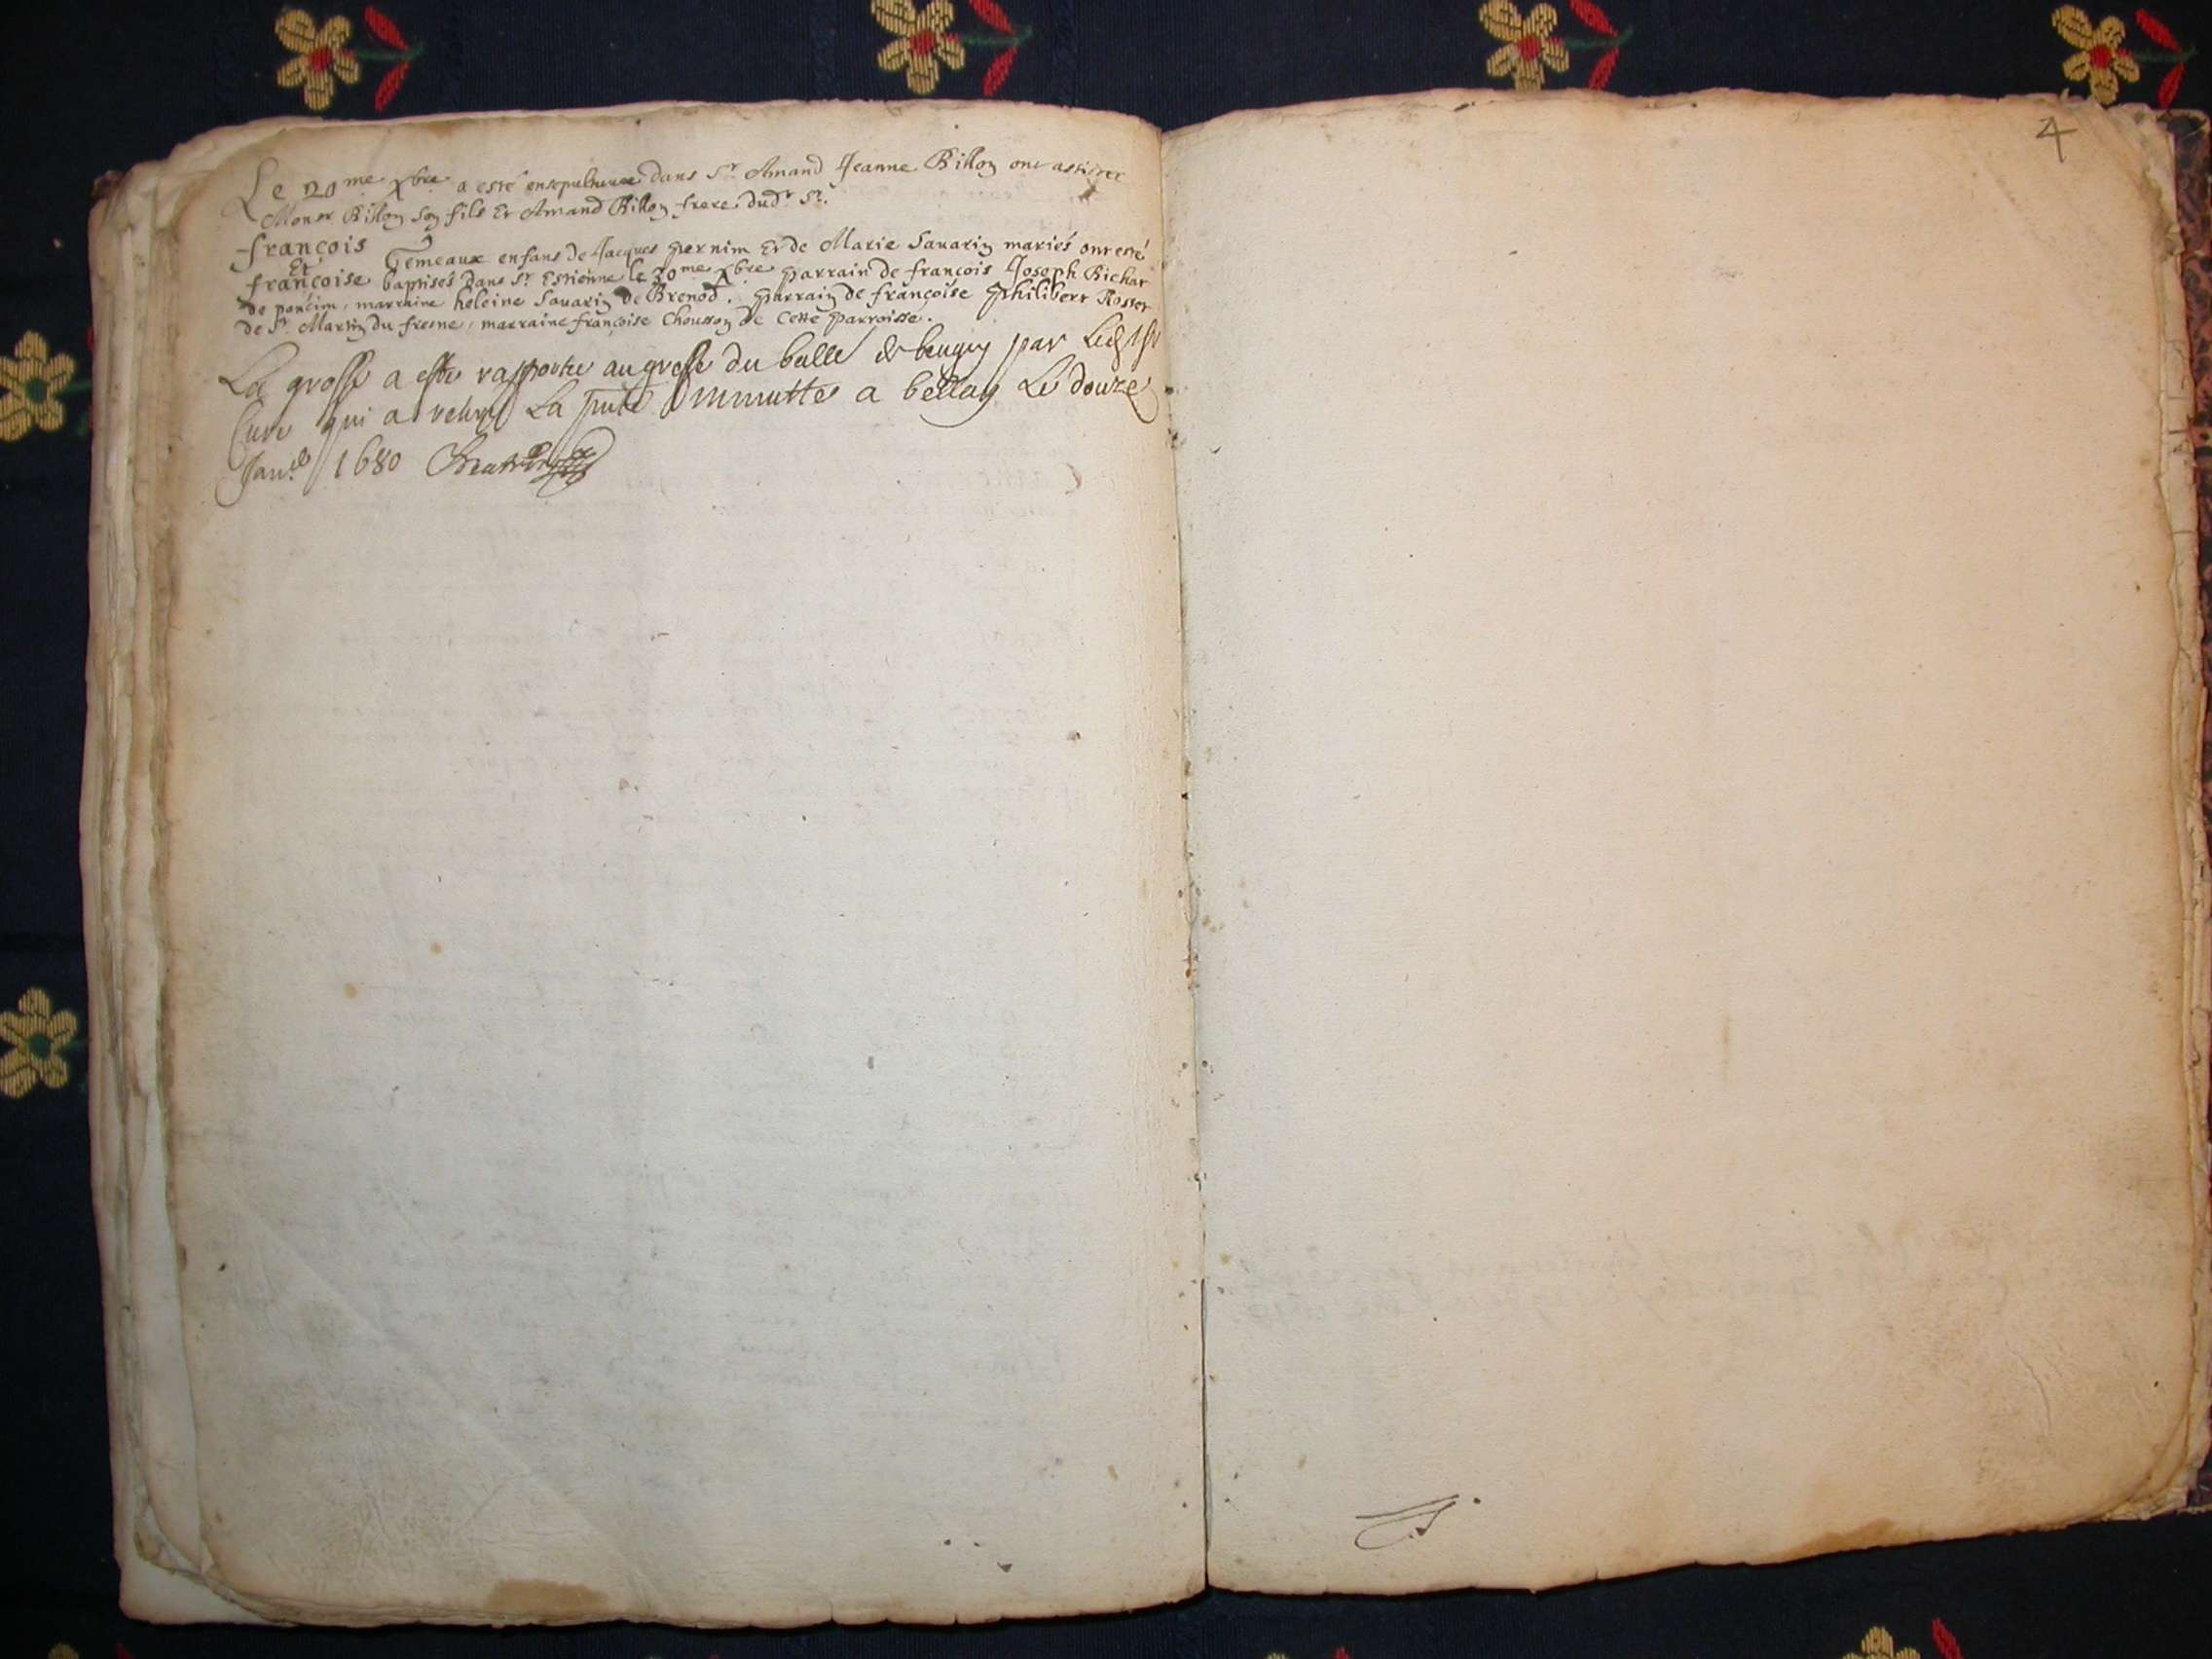 Le 20me Xbre a esté ensepulturée dans St Amand Jeanne Billoz ont assistee
Moner Billoz soz fils Et Amand Billoz frere dudt Sr.
françois Gemeaux enfans de Jacques pernim Et de Marie Savariz mariés ont esté
Et
françoise baptisés dans St Estienne le 30me Xbre parrain de françois Joseph Richar
de poncim, marraine heleine Savariz de Brenod. parraiz de françoise philibert Rosset
de St Martiz du fresne, marraine françoise Choussoz de Cette parroisse.
La grosse a esté rapportee au greffe du balle de beugey par Led Sr
Cure qui a retiré La pnte minutte a bellay Le douze
Janer 1680
4